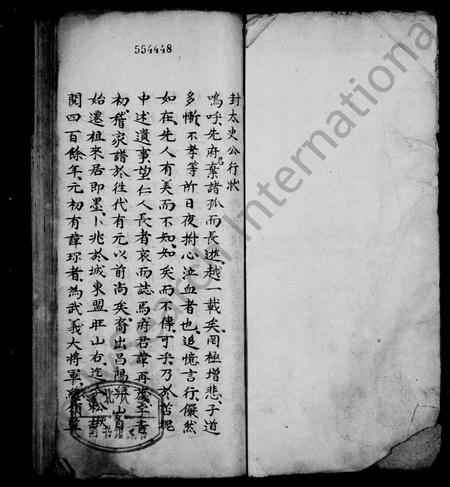 554448
封太史公行狀
嗚呼先府君棄諸孤而長逝越一載矣罔極增悲子道
多慚不孝等所日夜拊心泣血者也追憶言行儼然
如在先人有美而不知知矣而不傳可乎乃於苫塊
中述遺事望仁人長者哀而誌焉府君諱再
初稽家譜於往代有元以前尚矣裔出昌陽
始遷祖來居即墨卜兆於城東盟旺山右迄
閱四百餘年元初有諱珎者為武義大將軍
International